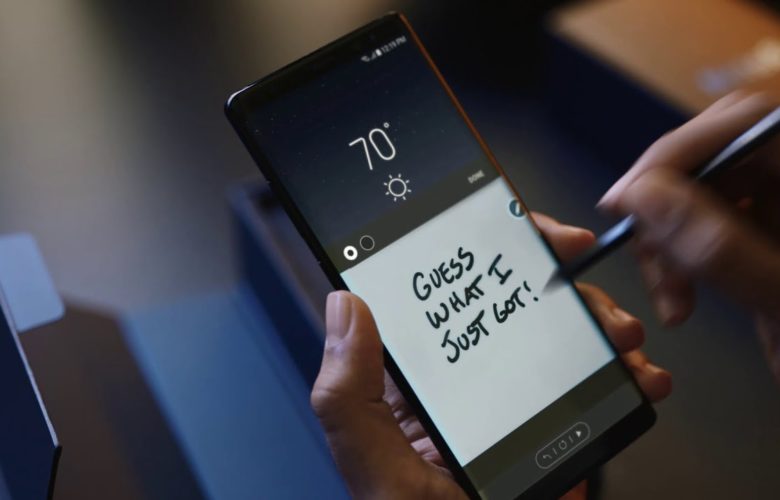 12:19 PM
70°
DONE
GUESS
WHAT I
JUST GOT!